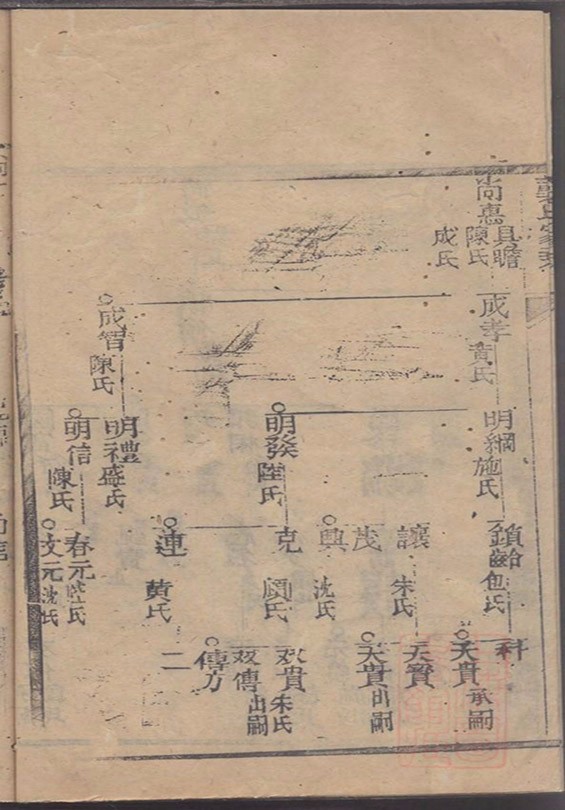 尚惠
具瞻
陳氏
成氏
成孝
黃氏
成智
陳氏
明綱
施氏
明發
陸氏
明禮
盛氏
明信
陳氏
鎖齡
包氏
讓
朱氏
茂
興
沈氏
克
顧氏
連
黃氏
春元
陸氏
文元
沈氏
科
天貴
承嗣
天寶
天貴
出嗣
双貴
朱氏
双傳
出嗣
傳方
二